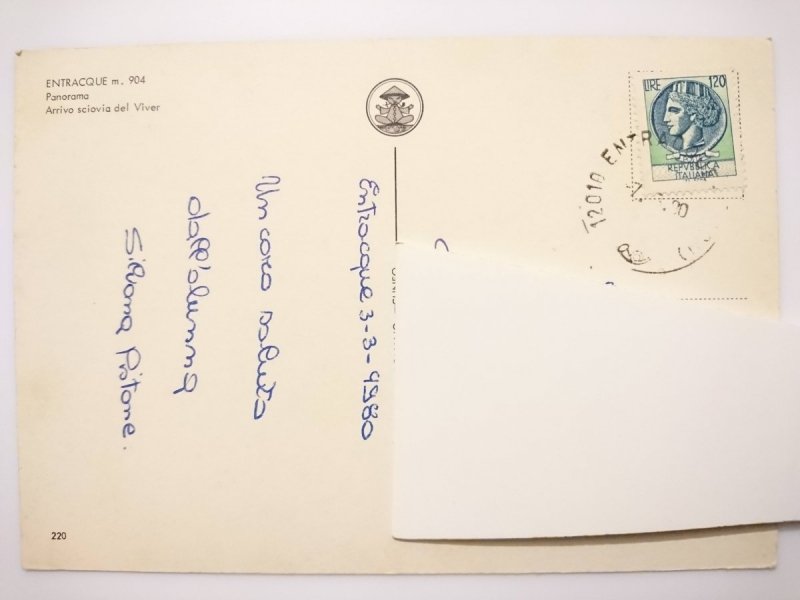 ENTRACQUE m. 904
Panorama
Arrivo sciovia del Viver
Entracque 3-3-1980
Un caro saluto
dall'alunna
Silvana Pistone.
LIRE 120
REPVBBLICA
ITALIANA
12010 ENTRA
220